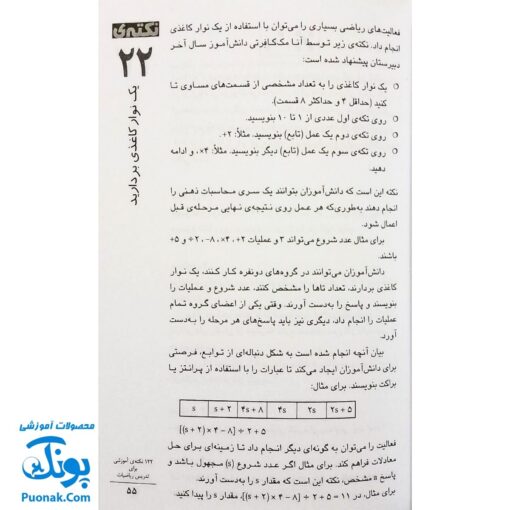 نکته‌ی
۲۲
یک نوار کاغذی بردارید
فعالیت‌های ریاضی بسیاری را می‌توان با استفاده از یک نوار کاغذی
انجام داد. نکته‌ی زیر توسط آنا مک‌کافرتی دانش‌آموز سال آخر
دبیرستان پیشنهاد شده است:
یک نوار کاغذی را به تعداد مشخصی از قسمت‌های مساوی تا
کنید (حداقل ۴ و حداکثر ۸ قسمت).
روی تکه‌ی اول عددی از ۱ تا ۱۰ بنویسید.
روی تکه‌ی دوم یک عمل (تابع) بنویسید. مثلاً: ۲+.
روی تکه‌ی سوم یک عمل (تابع) دیگر بنویسید. مثلاً: ۴×، و ادامه
دهید.
نکته این است که دانش‌آموزان بتوانند یک سری محاسبات ذهنی را
انجام دهند به‌طوری‌که هر عمل روی نتیجه‌ی نهایی مرحله‌ی قبل
اعمال شود.
برای مثال عدد شروع می‌تواند ۳ و عملیات ۲+، ۴×، ۸-، ۲÷ و ۵+
باشند.
دانش‌آموزان می‌توانند در گروه‌های دونفره کار کنند، یک نوار
کاغذی بردارند، تعداد تاها را مشخص کنند، عدد شروع و عملیات را
بنویسند و پاسخ را به‌دست آورند. وقتی یکی از اعضای گروه تمام
عملیات را انجام داد، دیگری نیز باید پاسخ‌های هر مرحله را به‌دست
آورد.
بیان آنچه انجام شده است به شکل دنباله‌ای از توابع، فرصتی
برای دانش‌آموزان ایجاد می‌کند تا عبارات را با استفاده از پرانتز یا
براکت بنویسند. برای مثال:
s | s+۲ | ۴s+۸ | ۴s | ۲s | ۲s+۵
[(s+۲)×۴-۸]÷۲+۵
فعالیت را می‌توان به گونه‌ای دیگر انجام داد تا زمینه‌ای برای حل
معادلات فراهم کند. برای مثال اگر عدد شروع (s) مجهول باشد و
پاسخ a مشخص، نکته این است که مقدار s را به‌دست آورند.
برای مثال، در ۱۱ = ۵ + ۲ ÷ [(s+۲)×۴-۸]، مقدار s را پیدا کنید.
۱۲۲ نکته‌ی آموزشی
برای
تدریس ریاضیات
۵۵
محصولات آموزشی
پونک
Puonak.Com